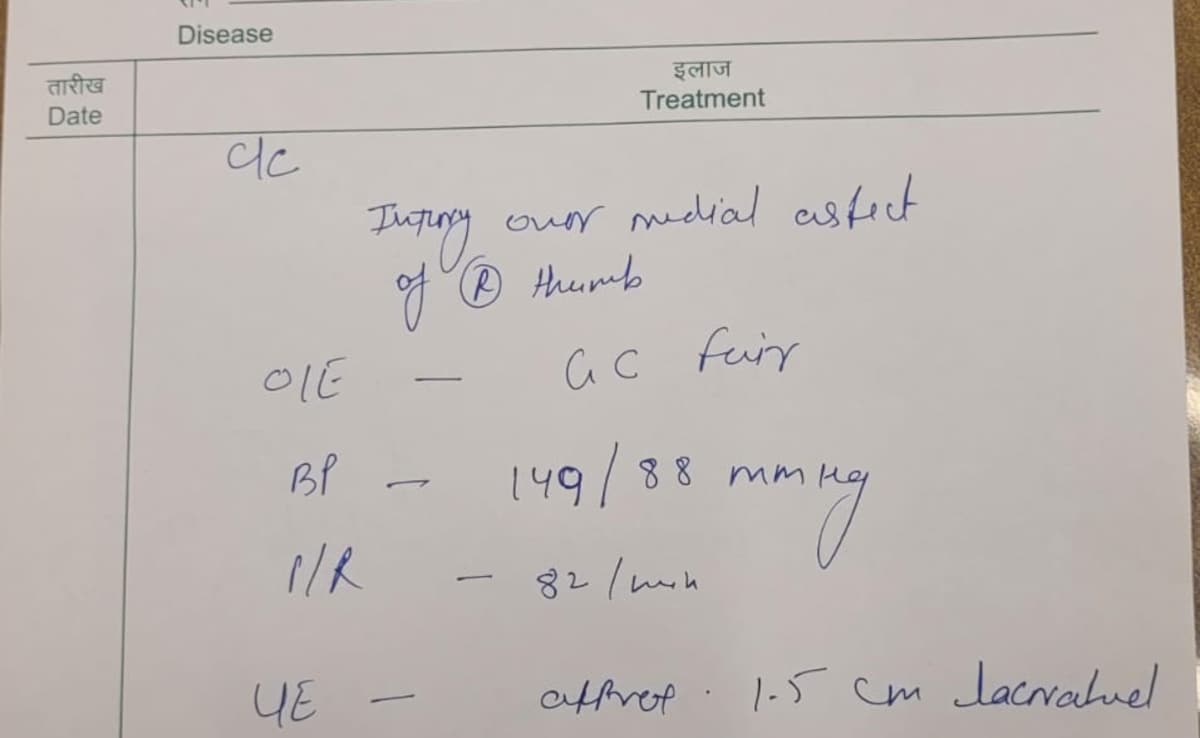 Disease
तारीख
Date
इलाज
Treatment
C/C
Injury over medial aspect
of Ⓡ thumb
O/E — GC fair
BP — 149/88 mmHg
P/R — 82/min
L/E — approx. 1.5 cm lacerated